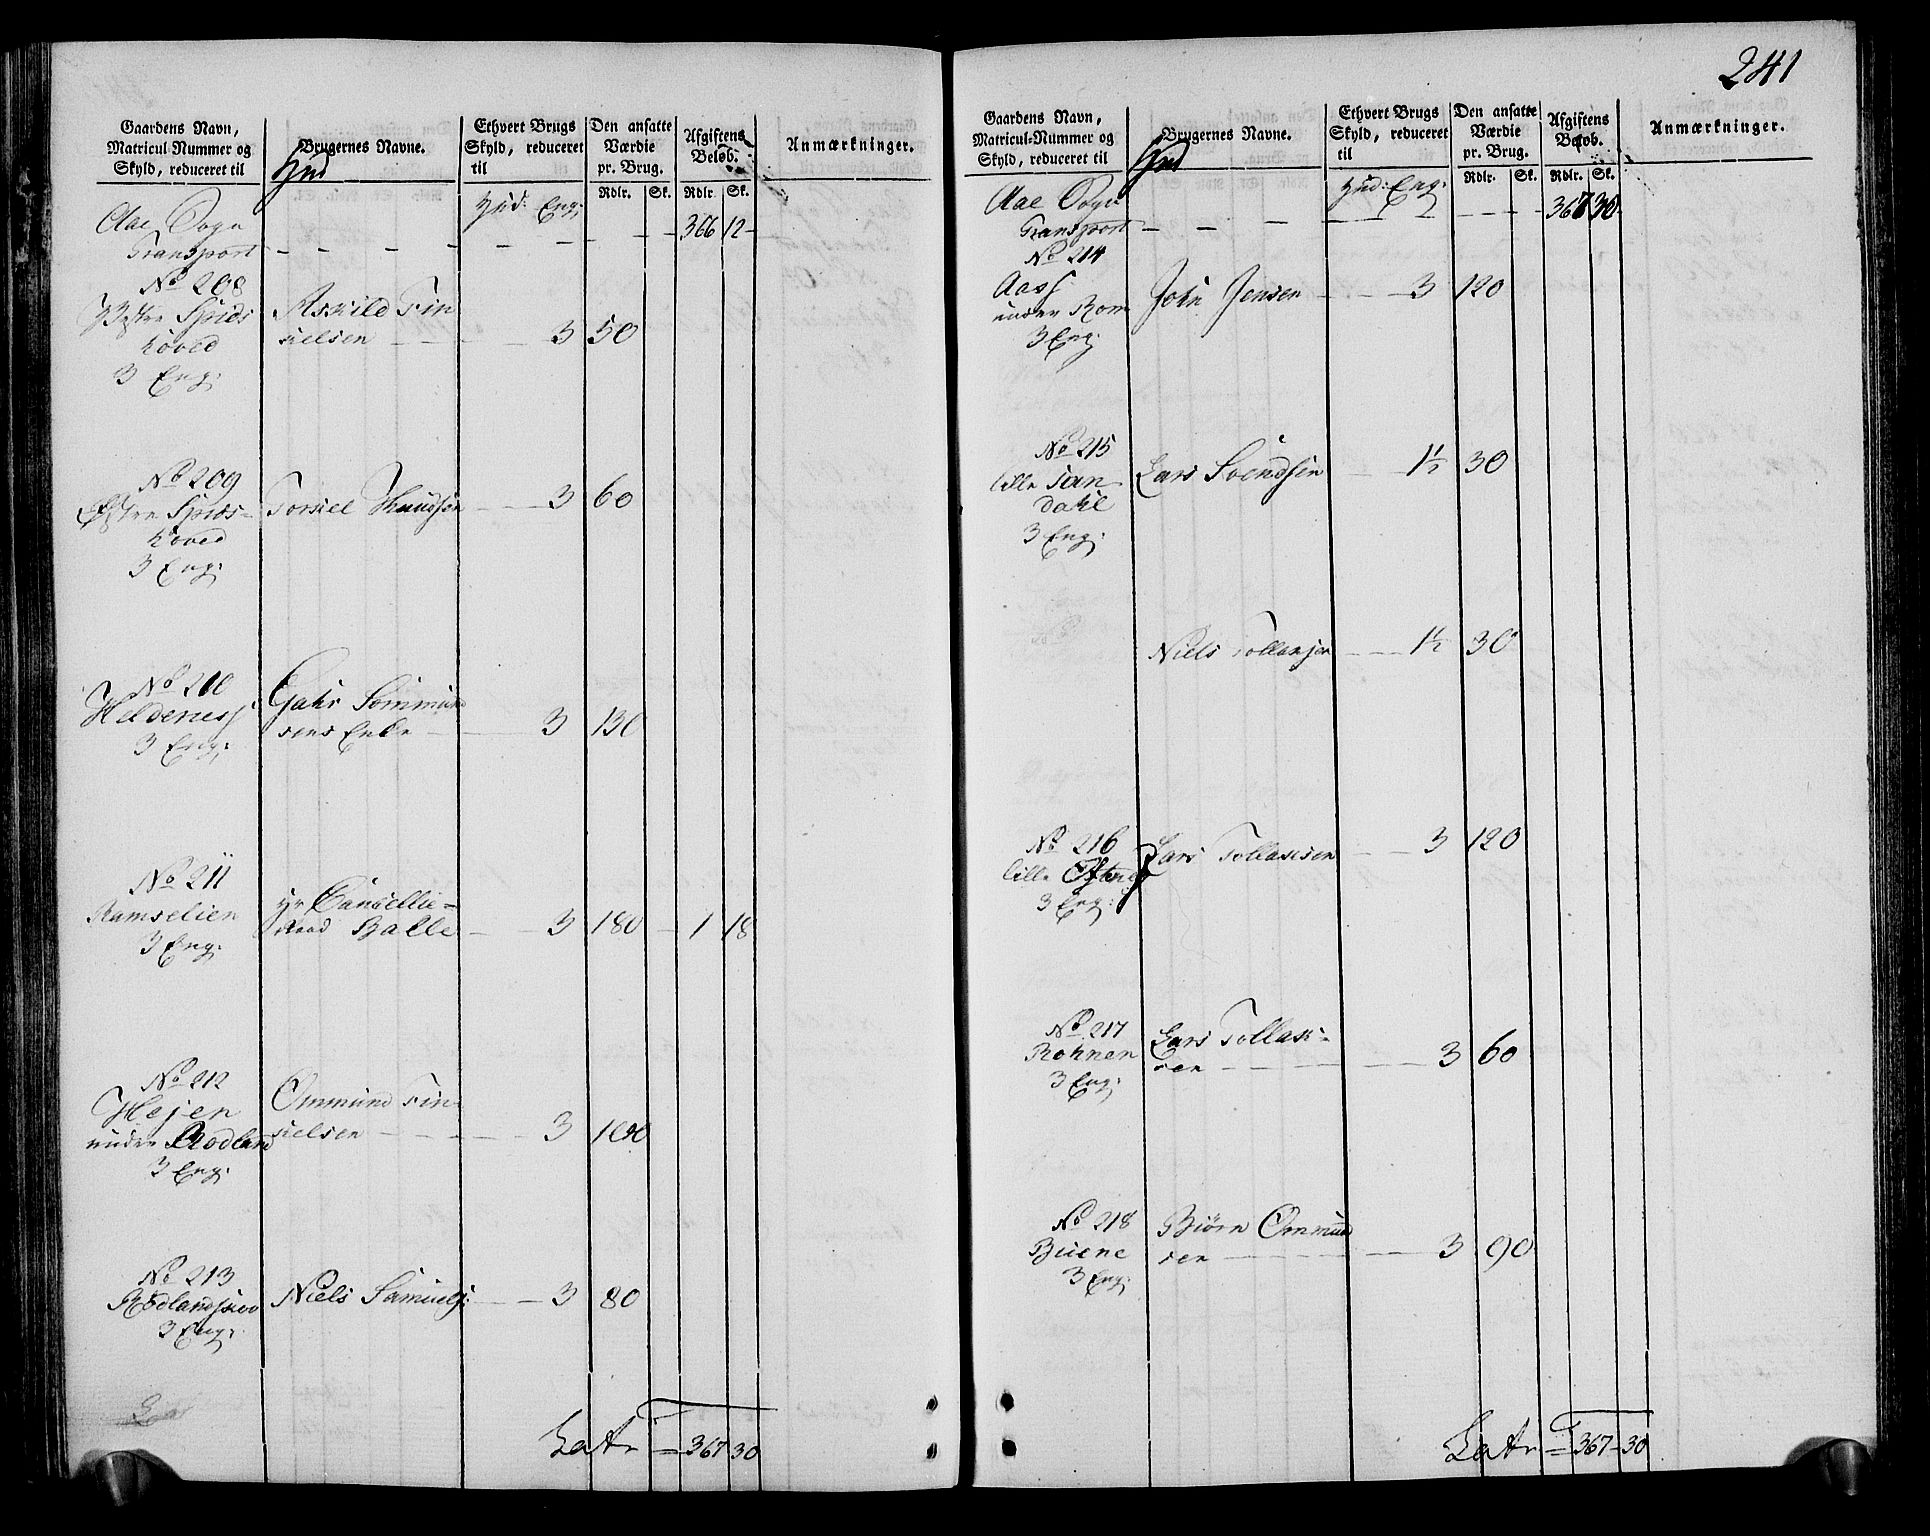 241
Gaardens Navn, Matricul-Nummer og Skyld, reduceret til
Brugernes Navne.
Ethvert Brugs Skyld, reduceret til
Den ansatte Værdie pr. Brug.
Afgiftens Beløb.
Anmærkninger.
Hud
Rdlr. Sk. Rdlr. Sk.
Hud: Eng:
Aae Sogn
Transport — — — — — — 366 12
No 208
Vestre Spids
hoved
3 Eng:
Askild Fin
kelsen — — — 3 50
No 209
Østre Spids-
hoved
3 Eng:
Torkel Knudsen — — 3 60
No 210
Heldeness
3 Eng:
Gahr Sommund
sens Enke — — 3 130
No 211
Ramselien
3 Eng:
Hr Cancellie-
Raad Balle — — 3 180 — 1 18
No 212
Hejen
under Rodland
3 Eng:
Ommund Fin-
kelsen — — — 3 100
No 213
Rodlandskov
3 Eng:
Niels Samuels: — — 3 80
Latr = 367 30
Gaardens Navn, Matricul-Nummer og Skyld, reduceret til
Brugernes Navne.
Ethvert Brugs Skyld, reduceret til
Den ansatte Værdie pr. Brug.
Afgiftens Beløb.
Anmærkninger.
Hud
Rdlr. Sk. Rdlr. Sk.
Hud: Eng:
Aae Sogn
Transport — — — — — — 367 30
No 214
Aass
under Rom
3 Eng:
John Jensen — — 3 120
No 215
lille Jan
dahl
3 Eng:
Lars Svendsen — 1½ 30
Niels Tollaksen — — 1½ 30
No 216
lille
3 Eng:
Lars Tollaksen — — 3 120
No 217
Rohnen
3 Eng:
Lars Tollak-
sen — — — 3 60
No 218
Buene
3 Eng:
Biørn Ommund
sen — — — 3 90
Latr = 367 - 30